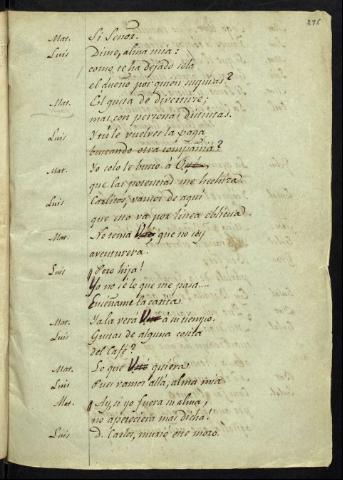 276
Mat. Si Señor.
Luis Dime, alma mia:
como te ha dejado sola
el dueño por quien suspiras?
Mat. El gusta de divertirse;
mas, con personas distintas.
Luis Y tú le vuelves la paga
buscando otra compañia?
Mat. Yo solo le busco á
que las potencias me hechiza
Luis Carlitos, vamos de aqui
que esto va por linea obliqua.
Mat. No tema que no soy
aventurera.
Luis ¡Pero hija!
Yo no se lo que me pasa....
Enséñame la carita
Mat. Ya la verá á su tiempo.
Luis Gustas de alguna cosita
del Café?
Mat. Lo que quiera
Luis Pues vamos allá, alma mia
Mat. ¡Ay, si yo fuera su alma,
no apeteciera mas dicha!
Luis D. Carlos, murió este mozo.